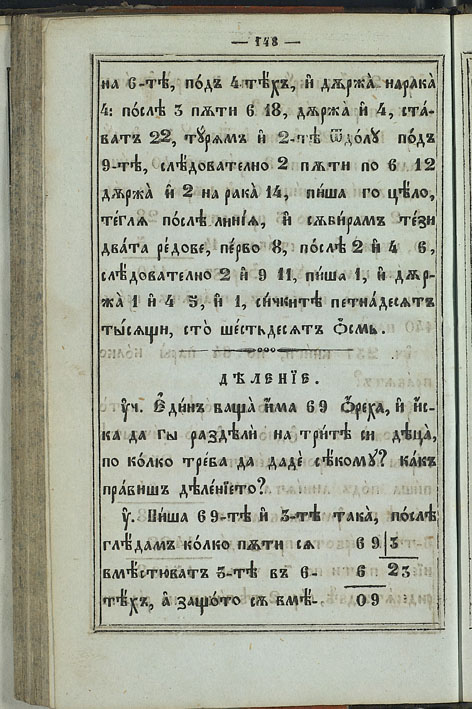 — 148 —
на 6-тѣ, под̾ 4-тѣхъ, и҆ дѫржа̀ нарѧка̀
4: по́слѣ 3 пѫ́ти 6 18, дѫржа̀ и҆ 4, ста́-
ватъ 22, ту́рѧмъ и҆ 2-тѣ ѿдо́лу подъ
9-тѣ, слѣ́дователно 2 пѫ́ти по 6 12
дѫржа̀ и҆ 2 на рака̀ 14, пи́ша го цѣ́ло,
те́глѧ по́слѣ ли́нїѧ, и҆ сѫби́рамъ те́зи
два́та ре́дове, пе́рво 8, по́слѣ 2 и҆ 4 6,
слѣ́дователно 2 и҆ 9 11, пи́ша 1, и҆ дѫр-
жа̀ 1 и҆ 4 5, и҆ 1, си́чките петна́десѧтъ
ты́сѧщи, сто̀ ше́стьдесѧтъ ѻ҆́смь.
ДѢЛЕНЇЕ.
Уч. Е҆ди́нъ баща̀ и҆́ма 69 ѻ҆́рѣха, и҆ и҆́с-
ка да гы раздѣлѝ на три́тѣ си дѣца̀,
по ко́лко тре́ба да дадѐ сѣ́кому? ка́къ
пра́вишъ дѣле́нїето?
У. Пи́ша 69-тѣ и҆ 3-тѣ така̀, по́слѣ
глѣ́дамъ ко́лко пѫ́ти сѧ 69|3
вмѣ́стюватъ 3-тѣ въ 6- 6 23
тѣ́хъ, а҆ защо́то сѧ вмѣ́- 09